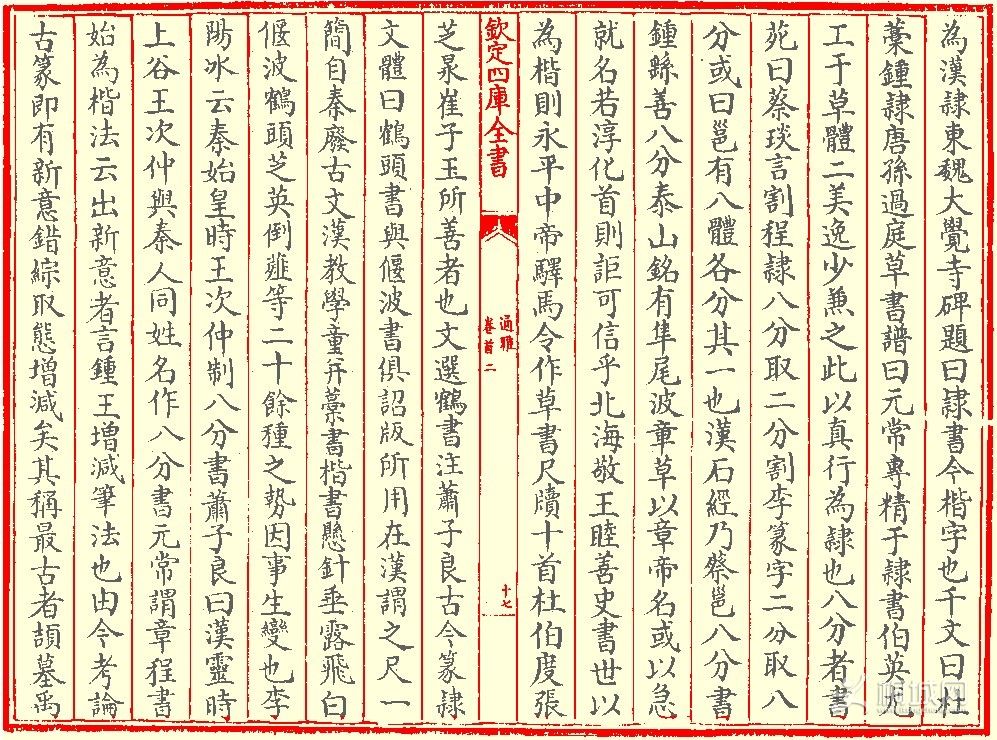 為漢隸東魏大覺寺碑題曰隸書今楷字也千文曰杜
藁鍾隸唐孫過庭草書譜曰元常專精于隸書伯英尤
工于草體二美逸少兼之此以真行為隸也八分者書
苑曰蔡琰言割程隸八分取二分割李篆字二分取八
分或曰邕有八體各分其一也漢石經乃蔡邕八分書
鍾繇善八分泰山銘有隼尾波章草以章帝名或以急
就名若淳化首則詎可信乎北海敬王睦善史書世以
為楷則永平中帝驛馬令作草書尺牘十首杜伯度張
欽定四庫全書
通雅
卷首二
十七
芝泉崔子玉所善者也文選鶴書注蕭子良古今篆隸
文體曰鶴頭書與偃波書俱詔版所用在漢謂之尺一
簡自秦廢古文漢教學童并藁書楷書懸針垂露飛白
偃波鶴頭芝英倒薤等二十餘種之勢因事生變也李
陽冰云秦始皇時王次仲制八分書蕭子良曰漢靈時
上谷王次仲與秦人同姓名作八分書元常謂章程書
始為楷法云出新意者言鍾王增減筆法也由今考論
古篆即有新意錯綜取態增減矣其稱最古者頡墓禹